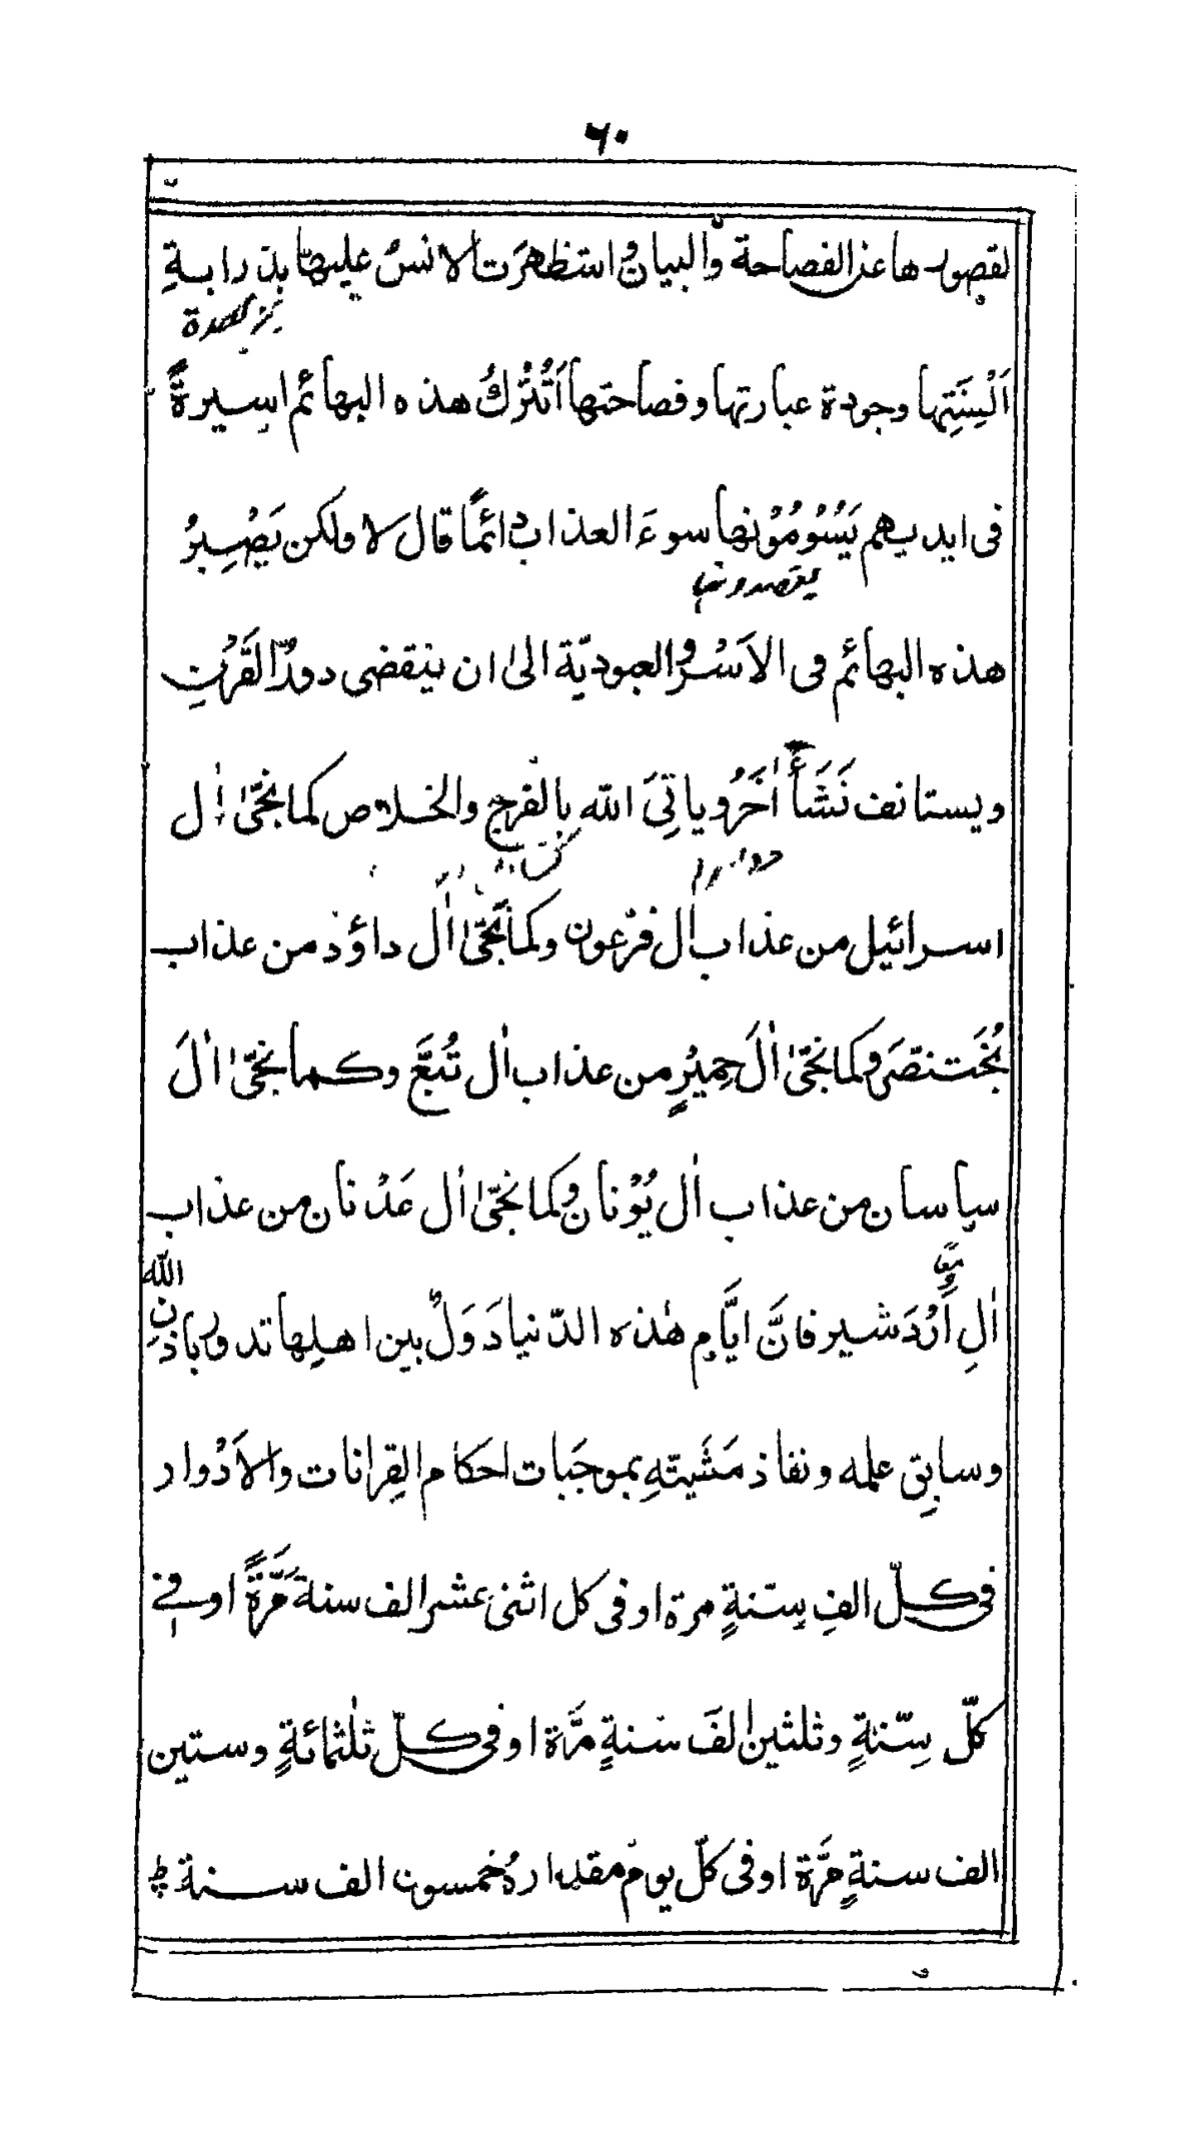 ٦٠
لقصورها عن الفصاحة والبيان واستظهرت الانس عليها بذرابةِ
اَلْسِنَتِها وجودة عبارتها وفصاحتها اَتُتْرَكُ هذه البهائم اسيرةً
فى ايديهم يَسُوْمُوْنها سوءَ العذاب دائمًا قال لا ولكن يَصْبِرُ
هذه البهائم فى الاَسْرِ والعبوديّة الىٰ ان ينقضى دورُ القَرْنِ
ويستانف نَشَأٌ اٰخَرُ وياتِىَ اللّه بالفرج والخلاص كما نجّىٰ اٰل
اسرائيل من عذاب اٰل فرعون وكما نجّىٰ اٰل داؤد من عذاب
بُخَتنصّرَ وكما نجّىٰ اٰلَ حِمِيْرٍ من عذاب اٰل تُبَّع وكما نجّىٰ اٰلَ
ساسان من عذاب اٰل يُوْنان وكما نجّىٰ اٰل عَدْنان من عذاب
اٰلِ اَرْدَشير فانَّ ايَّام هٰذه الدّنيا دَوَلٌ بين اهلها تدور باذنِ اللّه
وسابق علمه ونفاذ مَشَيتّهِ بموجَبات احكام القِرانات والاَدْوار
فى كلّ الفِ سنةٍ مرة او فى كل اثنى عشر الف سنة مَرَّةً او فى
كلّ سِتّةٍ وثلثين الفَ سنةٍ مرَّة او فى كلّ ثلٰثمائةٍ وستين
الف سنةٍ مرَّة او فى كلّ يوم مقداره خمسون الف سنة